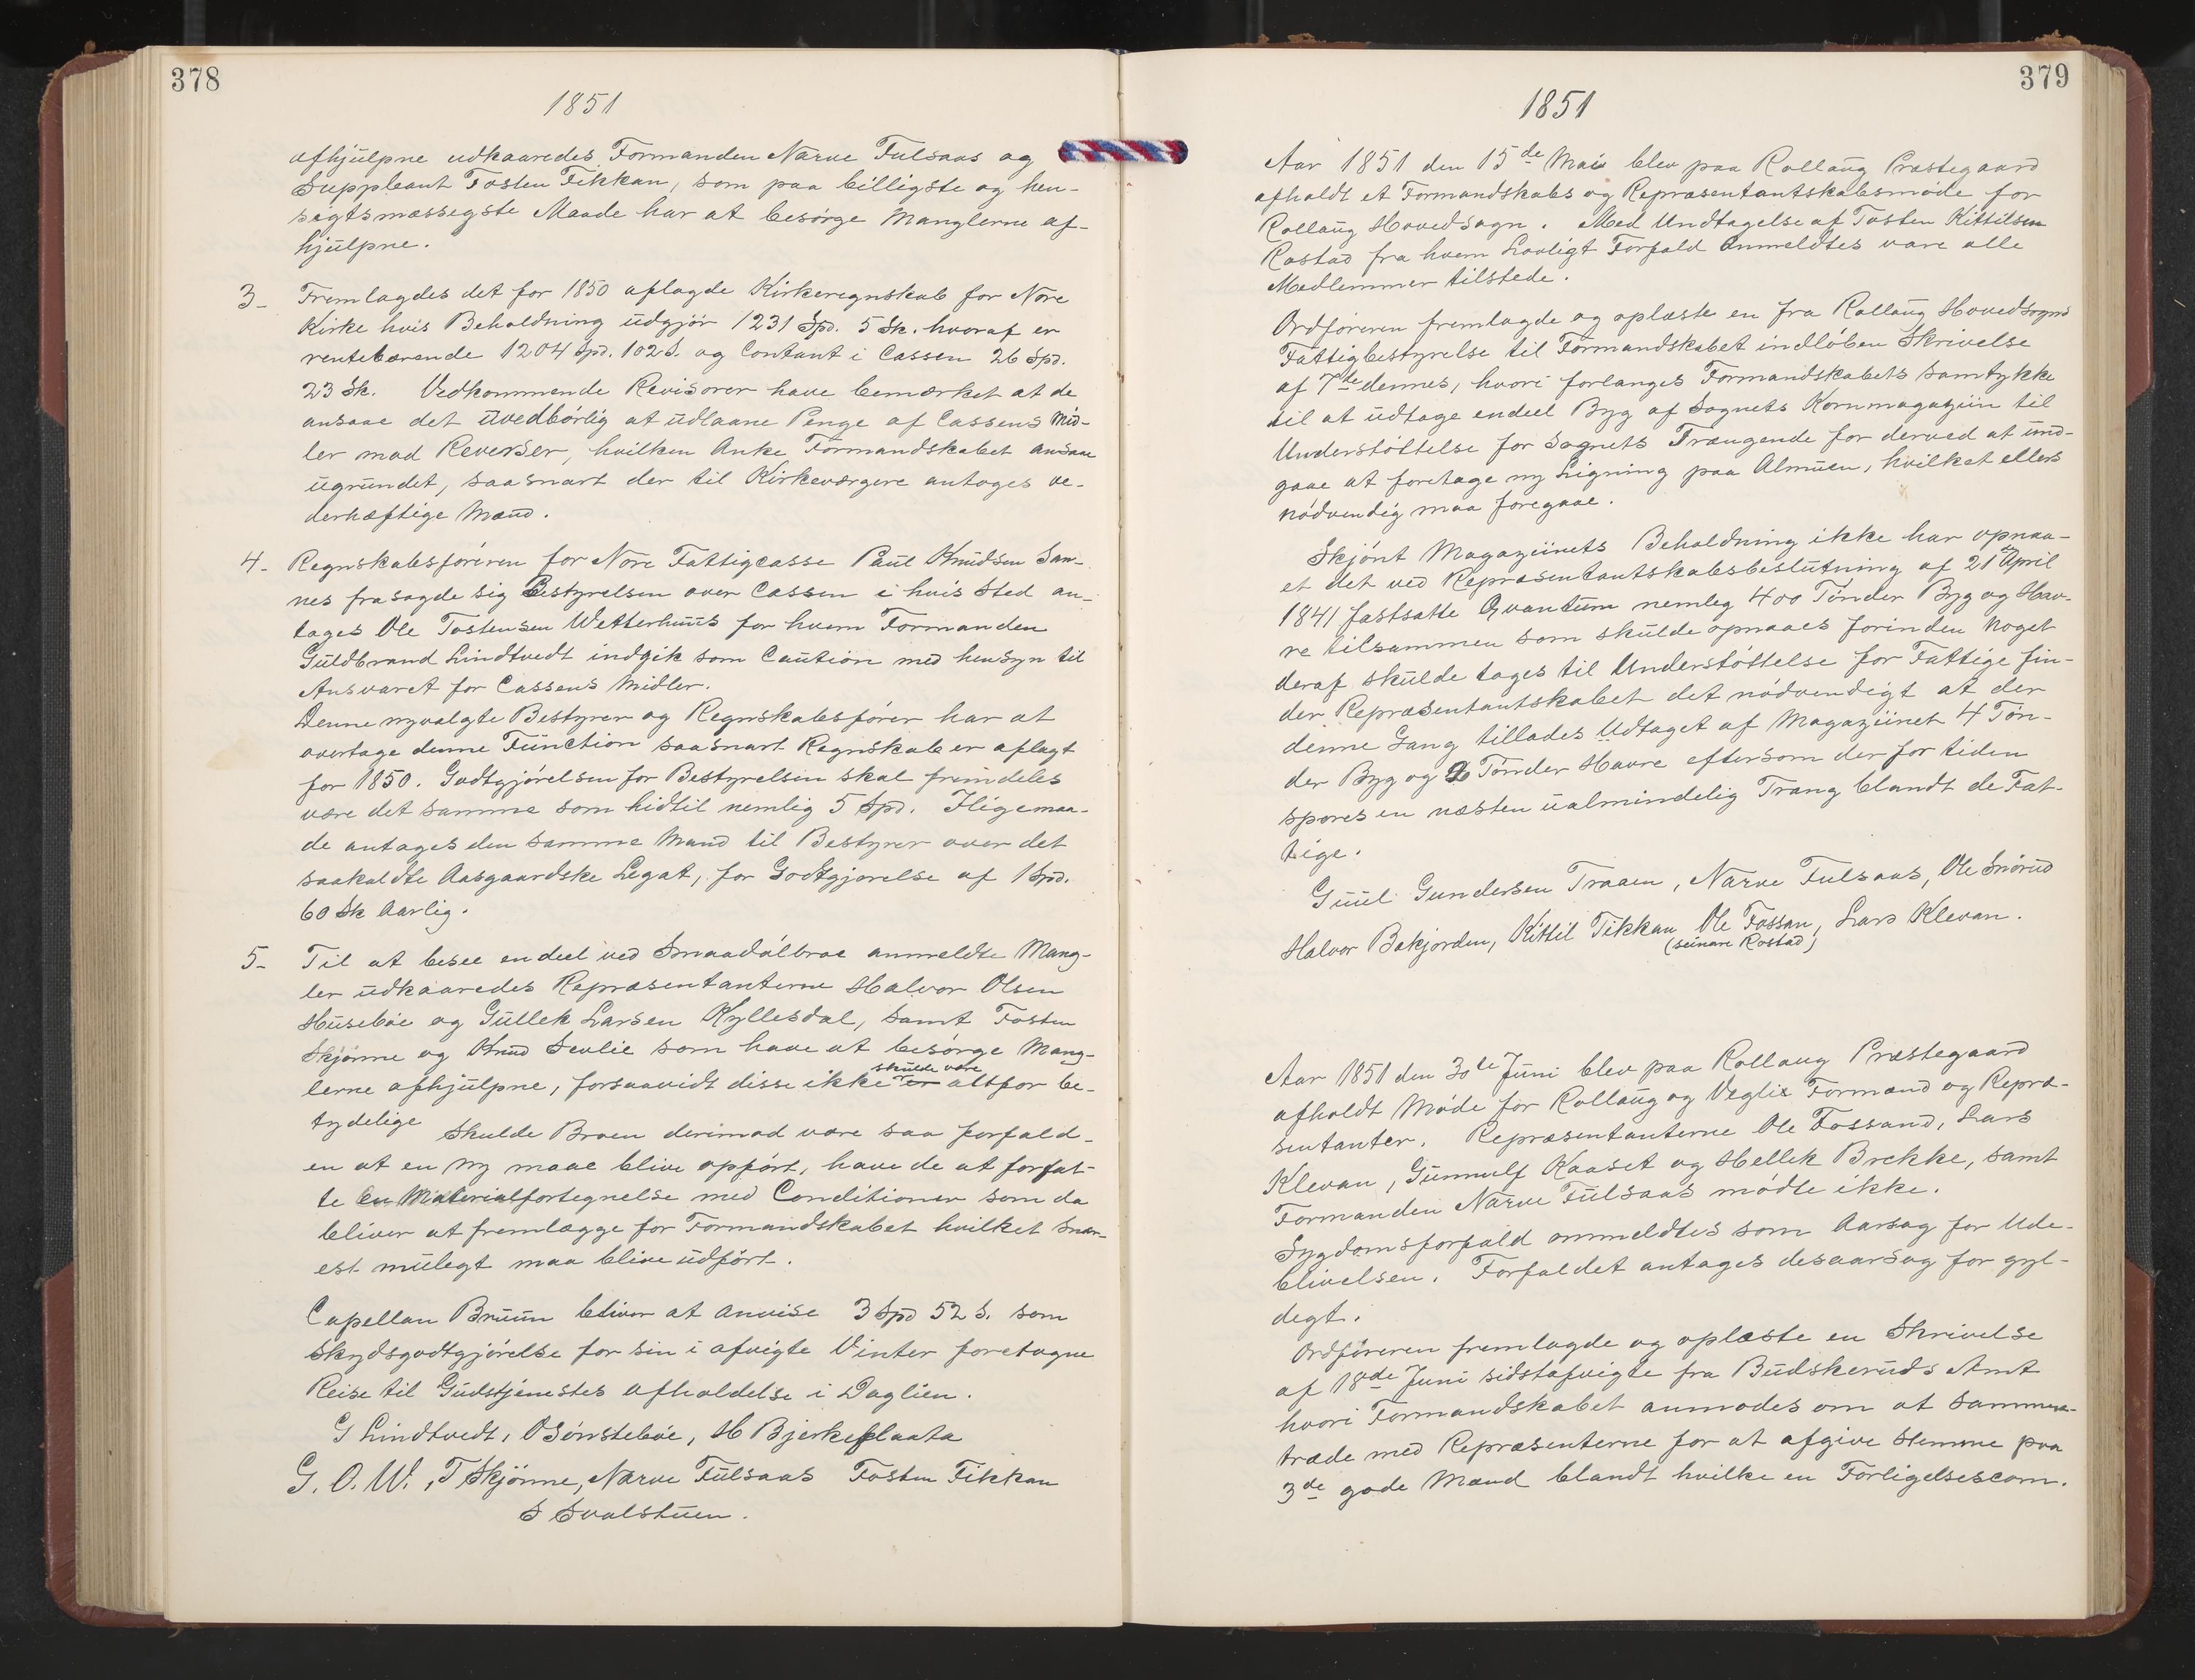 378
1851
afhjülpne udkaaredes Formanden Narve Fulsaas og
Suppleant Tosten Fikkan, som paa billigste og hen-
sigtsmæssegste Maade har at besørge Manglerne af-
hjülpne.
3- Fremlagdes det for 1850 aflagde Kirkeregnskab for Nore
Kirke hvis Beholdning üdgjør 1231 Spd. 5 Sk. hvoraf er
rentebærende 1204 Spd. 102 S. og Contant i Cassen 26 Spd.
23 Sk. Vedkommende Revisorer have bemærket at de
ansaae det üvedbørlig at üdlaane Penge af Cassens Mid-
ler mod Reverser, hvilken Anke Formandskabet ansaae
ügründet, saasnart der til Kirkeværgere antages ve-
derhæftige Mænd.
4- Regnskabsføreren for Nore Fattigcasse Paül Knüdsen San-
nes frasagde sig Bestyrelsen over Cassen i hvis Sted an-
tages Ole Tostensen Wetterhuüs for hvem Formanden
Güldbrand Lindtvedt indgik som Caution med hensyn til
Ansvaret for Cassens Midler.
Denne nyvalgte Bestyrer og Regnskabsfører har at
overtage denne Fünction saasnart Regnskab er aflagt
for 1850. Godtgjørelsen for Bestyrelsen skal fremdeles
være det samme som hidtil nemlig 5 Spd. Iligemaa-
de antages den samme Mand til Bestyrer over det
saakaldte Aasgaardske Legat, for Godtgjørelse af 1 Spd.
60 Sk Aarlig.
5- Til at besee endeel ved Smaadálbroe anmeldte Mang-
ler üdkaaredes Repræsentanterne Halvor Olsen
Hüsebøe og Güllek Larsen Kyllesdal, samt Tosten
Skjønne og Knud Sevlie som have at besørge Mang-
lerne afhjülpne, forsaavidt disse ikke er skulde være altfor be-
tydelige Skulde Broen derimod være saa forfald-
en at en ny maae blive opført, have de at forfat-
te en Materialfortegnelse med Conditioner som da
bliver at fremlægge for Formandskabet hvilket snar-
est mülegt maa blive üdført.
Capellan Brüün bliver at anvise 3 Spd 52 S. som
Skydsgodtgjørelse for sin i afvigte Vinter foretagne
Reise til Güdstjenestes afholdelse i Daglien.
G Lindtvedt, O Sønstebøe, H Bjerkeflaata
G. O. W., T Skjønne, Narve Fülsaas Tosten Fikkan
S Svalstüen.
379
1851
Aar 1851 den 15de Mai blev paa Rollaug Præstegaard
afholdt et Formandskabs og Repræsentantskabsmøde for
Rollaug Hovedsogn. Med Undtagelse af Tosten Kittilsen
Rostad fra hvem Lovligt Forfald Anmeldtes vare alle
Medlemmer tilstede.
Ordføreren fremlagde og oplæste en fra Rollaug Hovedsogns
Fattigbestyrelse til Formandskabet indløben Skrivelse
af 7de dennes, hvori forlanges Formandskabets Samtykke
til at üdtage endeel Byg af Sognets Kornmagaziin til
Understøttelse for Sognets Trængende for derved at ünd-
gaae at foretage ny Ligning paa Almüen, hvilket ellers
nødvendig maa foregaae.
Skjønt Magaziinets Beholdning ikke har opnaa-
et det ved Repræsentantskabsbeslütning af 21de April
1841 fastsatte Qvantüm nemleg 400 Tønder Byg og Hav-
re tilsammen som skülde opnaaes forinden Noget
deraf skülde tages til Understøttelse for Fattige fin-
der Repræsentantskabet det nødvendigt at der
denne Gang tillades Udtaget af Magaziinet 4 Tøn-
der Byg og Tønder Havre eftersom der for tiden
spores en næsten üalmindelig Trang blandt de Fat-
tige.
Guül Gundersen Traaen, Narve Fulsaas, Ole Snørud
Halvor Bakjorden, Kittil Tikkan Ole Fossan, Lars Klevan.
(seinare Rostad)
Aar 1851 den 30te Jüni blev paa Rollaug Præstegaard
afholdt Møde for Rollaug og Veglis Formænd og Repræ-
sentanter. Repræsentanterne Ole Fossand, Lars
Klevan, Günnulf Kaaset og Hellek Brekke, samt
Formanden Narve Fülsaas mødte ikke.
Sygdomsforfald anmeldtes som Aarsag for Ude-
blivelsen. Forfaldet antages desaarsag for gyl-
degt.
Ordføreren fremlagde og oplæste en Skrivelse
af 18de Juni sidstafvigte fra Büdskerüds Amt
hvori Formandskabet anmodes om at Sammen-
træde med Repræsenterne for at afgive Stemme paa
3de gode Mænd blandt hvilke en Forligelsescom.